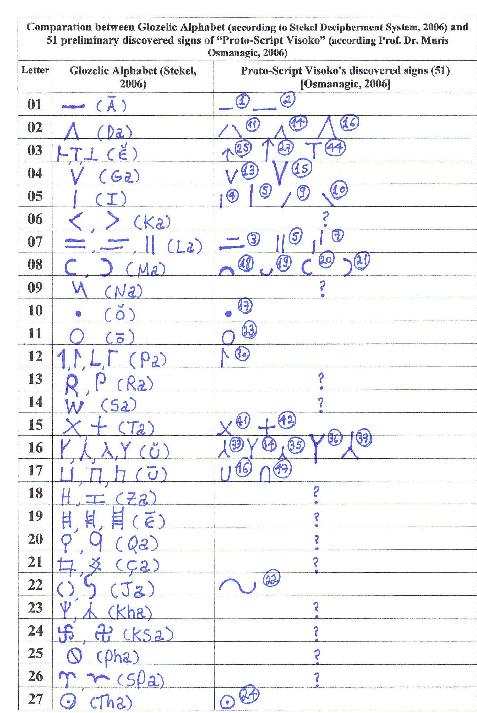 Comparation between Glozelic Alphabet (according to Stekel Decipherment System, 2006) and
51 preliminary discovered signs of "Proto-Script Visoko" (according Prof. Dr. Muris
Osmanagic, 2006)
Letter Glozelic Alphabet (Stekel, 2006) Proto-Script Visoko's discovered signs (51) [Osmanagic, 2006]
01 — (Ā) — 1 — 2
02 Λ (Da) / \ 11 Λ Λ 16
03 ⊢, T, ⊥ (Ĕ) ↑ 25 ↑ 27 T 44
04 V (Ga) V 13 V 15
05 | (I) | 4 | 5 / 9 \ 10
06 <, > (Ka) ?
07 =, =, || (La) = 3 || 5 ¦ 7
08 C, Ɔ (Ma) ⌒ 18 ⌣ 19 C 20 Ɔ 21
09 И (Na) ?
10 • (ŏ) • 17
11 O (ō) O 23
12 1, ↾, L, Γ (Pa) ↾
13 R, P (Ra) ?
14 W (Sa) ?
15 X + (Ta) X 41 + 42
16 Y, ⅄, λ, Y (Ŭ) ⅄ 33 Y 34 ⅄ 35 Y 36 ⅄ 37
17 ⊔, Π, h (Ū) U 46 ∩ 47
18 H, 工 (Za) ?
19 (Ē) ?
20 ϙ, 9 (Qa) ?
21 (Ça) ?
22 () (Ja) ~ 22
23 Ψ, (Kha) ?
24 卐, 卍 (KSa) ?
25 (Pha) ?
26 (SPa) ?
27 ⊙ (Tha) ⊙ 24